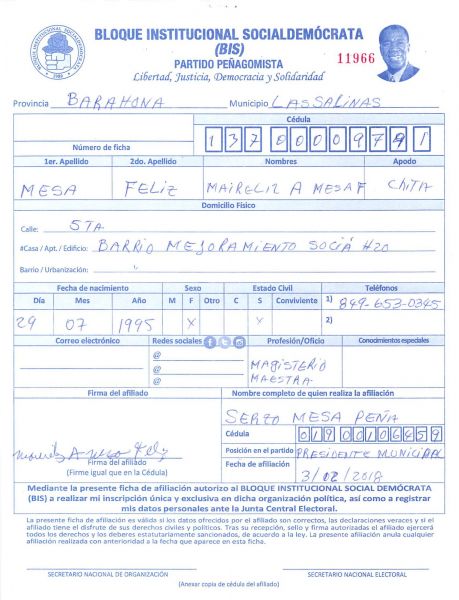 BLOQUE INSTITUCIONAL SOCIALDEMÓCRATA
(BIS)
PARTIDO PEÑAGOMISTA
Libertad, Justicia, Democracia y Solidaridad
11966
Provincia BARAHONA Municipio LAS SALINAS
Cédula
Número de ficha
1er. Apellido 2do. Apellido Nombres Apodo
MESA FELIZ MAIRELIZ A MESA F CHITA
Domicilio Físico
Calle: 5TA
#Casa / Apt. / Edificio: BARRIO MEJORAMIENTO SOCIA #20
Barrio / Urbanización:
Fecha de nacimiento Sexo Estado Civil Teléfonos
Día Mes Año M F Otro C S Conviviente 1) 849-653-0345
29 07 1995 X X 2)
Correo electrónico Redes sociales Profesión/Oficio Conocimientos especiales
@ MAGISTERIO
@ MAESTRA
@
Firma del afiliado Nombre completo de quien realiza la afiliación
MESA PEÑA
Cédula 01900106459
Firma del afiliado
(Firme igual que en la Cédula)
Posición en el partido PRESIDENTE MUNICIPAL
Fecha de afiliación 3/02/2018
Mediante la presente ficha de afiliación autorizo al BLOQUE INSTITUCIONAL SOCIAL DEMÓCRATA
(BIS) a realizar mi inscripción única y exclusiva en dicha organización política, así como a registrar
mis datos personales ante la Junta Central Electoral.
La presente ficha de afiliación es válida si los datos ofrecidos por el afiliado son correctos, las declaraciones veraces y si el
afiliado tiene el disfrute de sus derechos civiles y políticos. Tras su recepción, sello y firma autorizadas el afiliado ejercerá
todos los derechos y los deberes estatutariamente sancionados, de acuerdo a la ley. La presente afiliación anula cualquier
afiliación realizada con anterioridad a la fecha que aparece en esta ficha.
SECRETARIO NACIONAL DE ORGANIZACIÓN SECRETARIO NACIONAL ELECTORAL
(Anexar copia de cédula del afiliado)